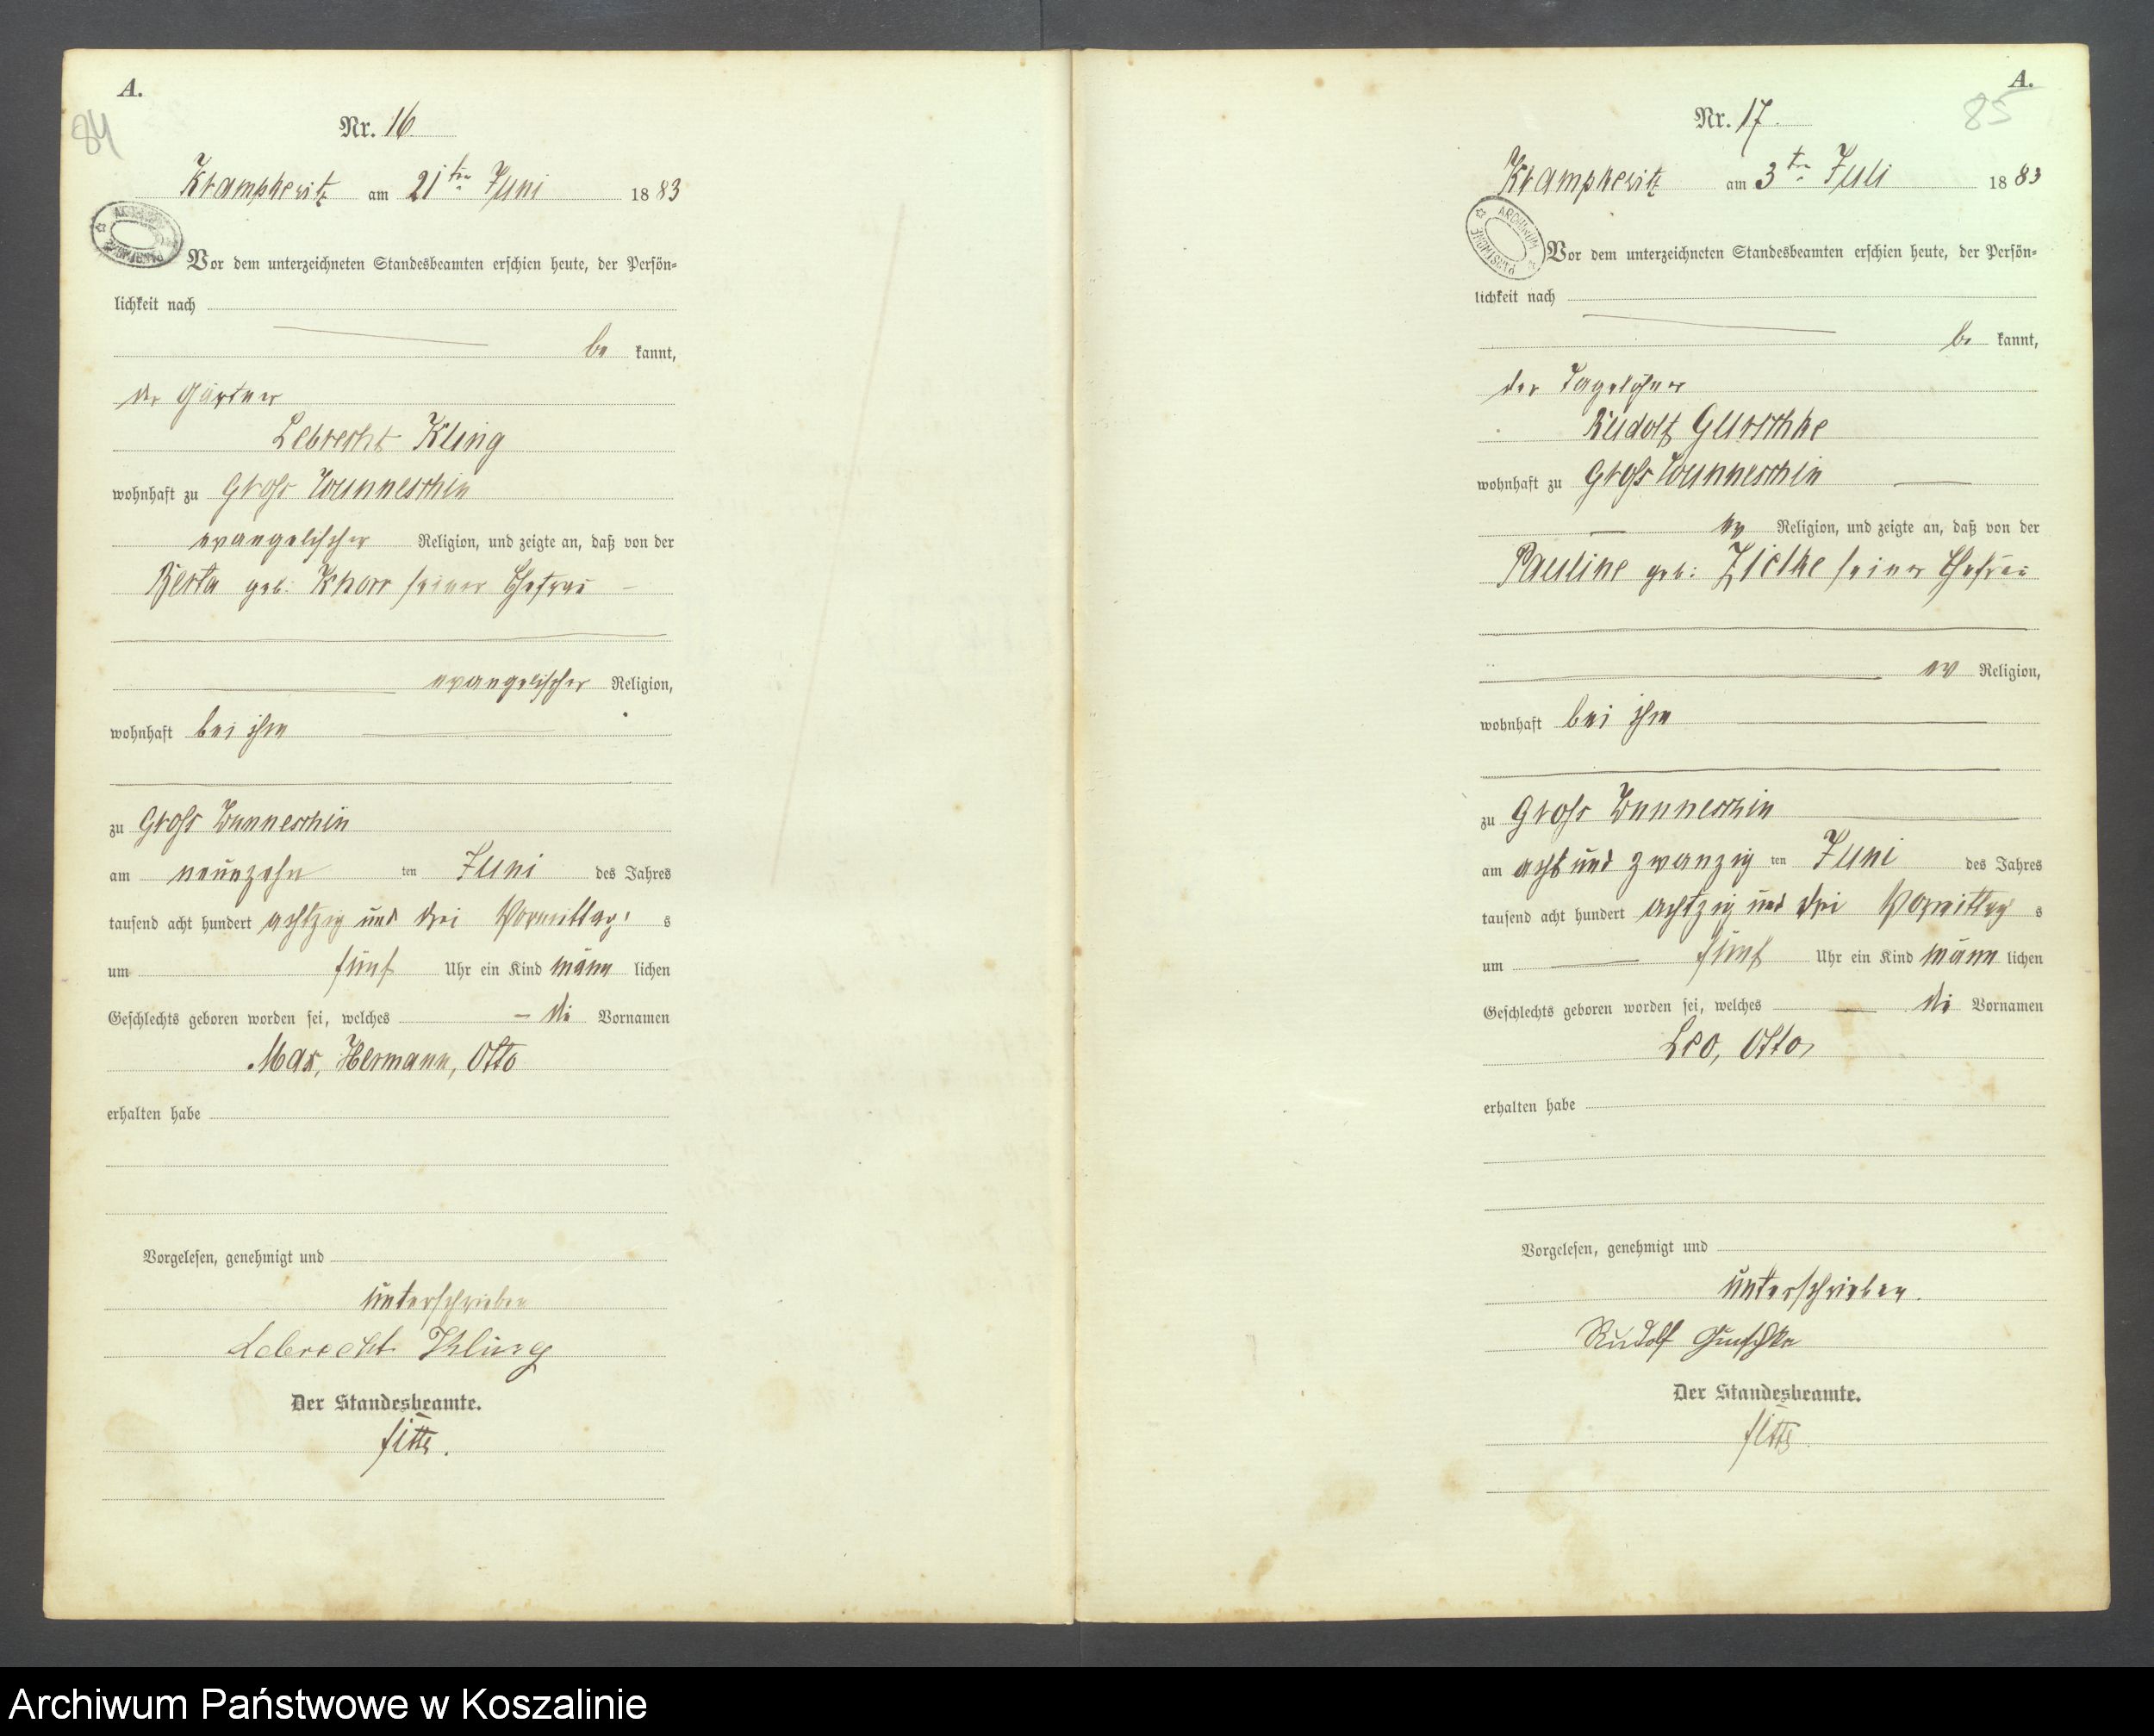 A.
84
Nr. 16.
Krampkewitz am 21ten Juni 1883
Vor dem unterzeichneten Standesbeamten erschien heute, der Persön-
lichkeit nach
be kannt,
der Gärtner
Lebrecht Kling
wohnhaft zu Gross Wunneschin
evangelischer Religion, und zeigte an, daß von der
Berta geb: Knorr seiner Ehefrau
evangelischer Religion,
wohnhaft bei ihm
zu Gross Wunneschin
am neunzehn ten Juni des Jahres
tausend acht hundert achtzig und drei Vormittag s
um fünf Uhr ein Kind männ lichen
Geschlechts geboren worden sei, welches die Vornamen
Max, Hermann, Otto
erhalten habe
Vorgelesen, genehmigt und
unterschrieben
Lebrecht Kling
Der Standesbeamte.
A.
85
Nr. 17.
Krampkewitz am 3ten Juli 1883
ARCHIWUM PAŃSTWOWE
Vor dem unterzeichneten Standesbeamten erschien heute, der Persön-
lichkeit nach
be kannt,
der Tagelöhner
Rudolf Gurschke
wohnhaft zu Gross Wunneschin
ev Religion, und zeigte an, daß von der
Pauline geb: Zielke seiner Ehefrau
ev Religion,
wohnhaft bei ihm
zu Gross Wunneschin
am acht und zwanzig ten Juni des Jahres
tausend acht hundert achtzig und drei Vormittag s
um fünf Uhr ein Kind männ lichen
Geschlechts geboren worden sei, welches die Vornamen
Leo, Otto,
erhalten habe
Vorgelesen, genehmigt und
unterschrieben.
Rudolf
Der Standesbeamte.
Archiwum Państwowe w Koszalinie